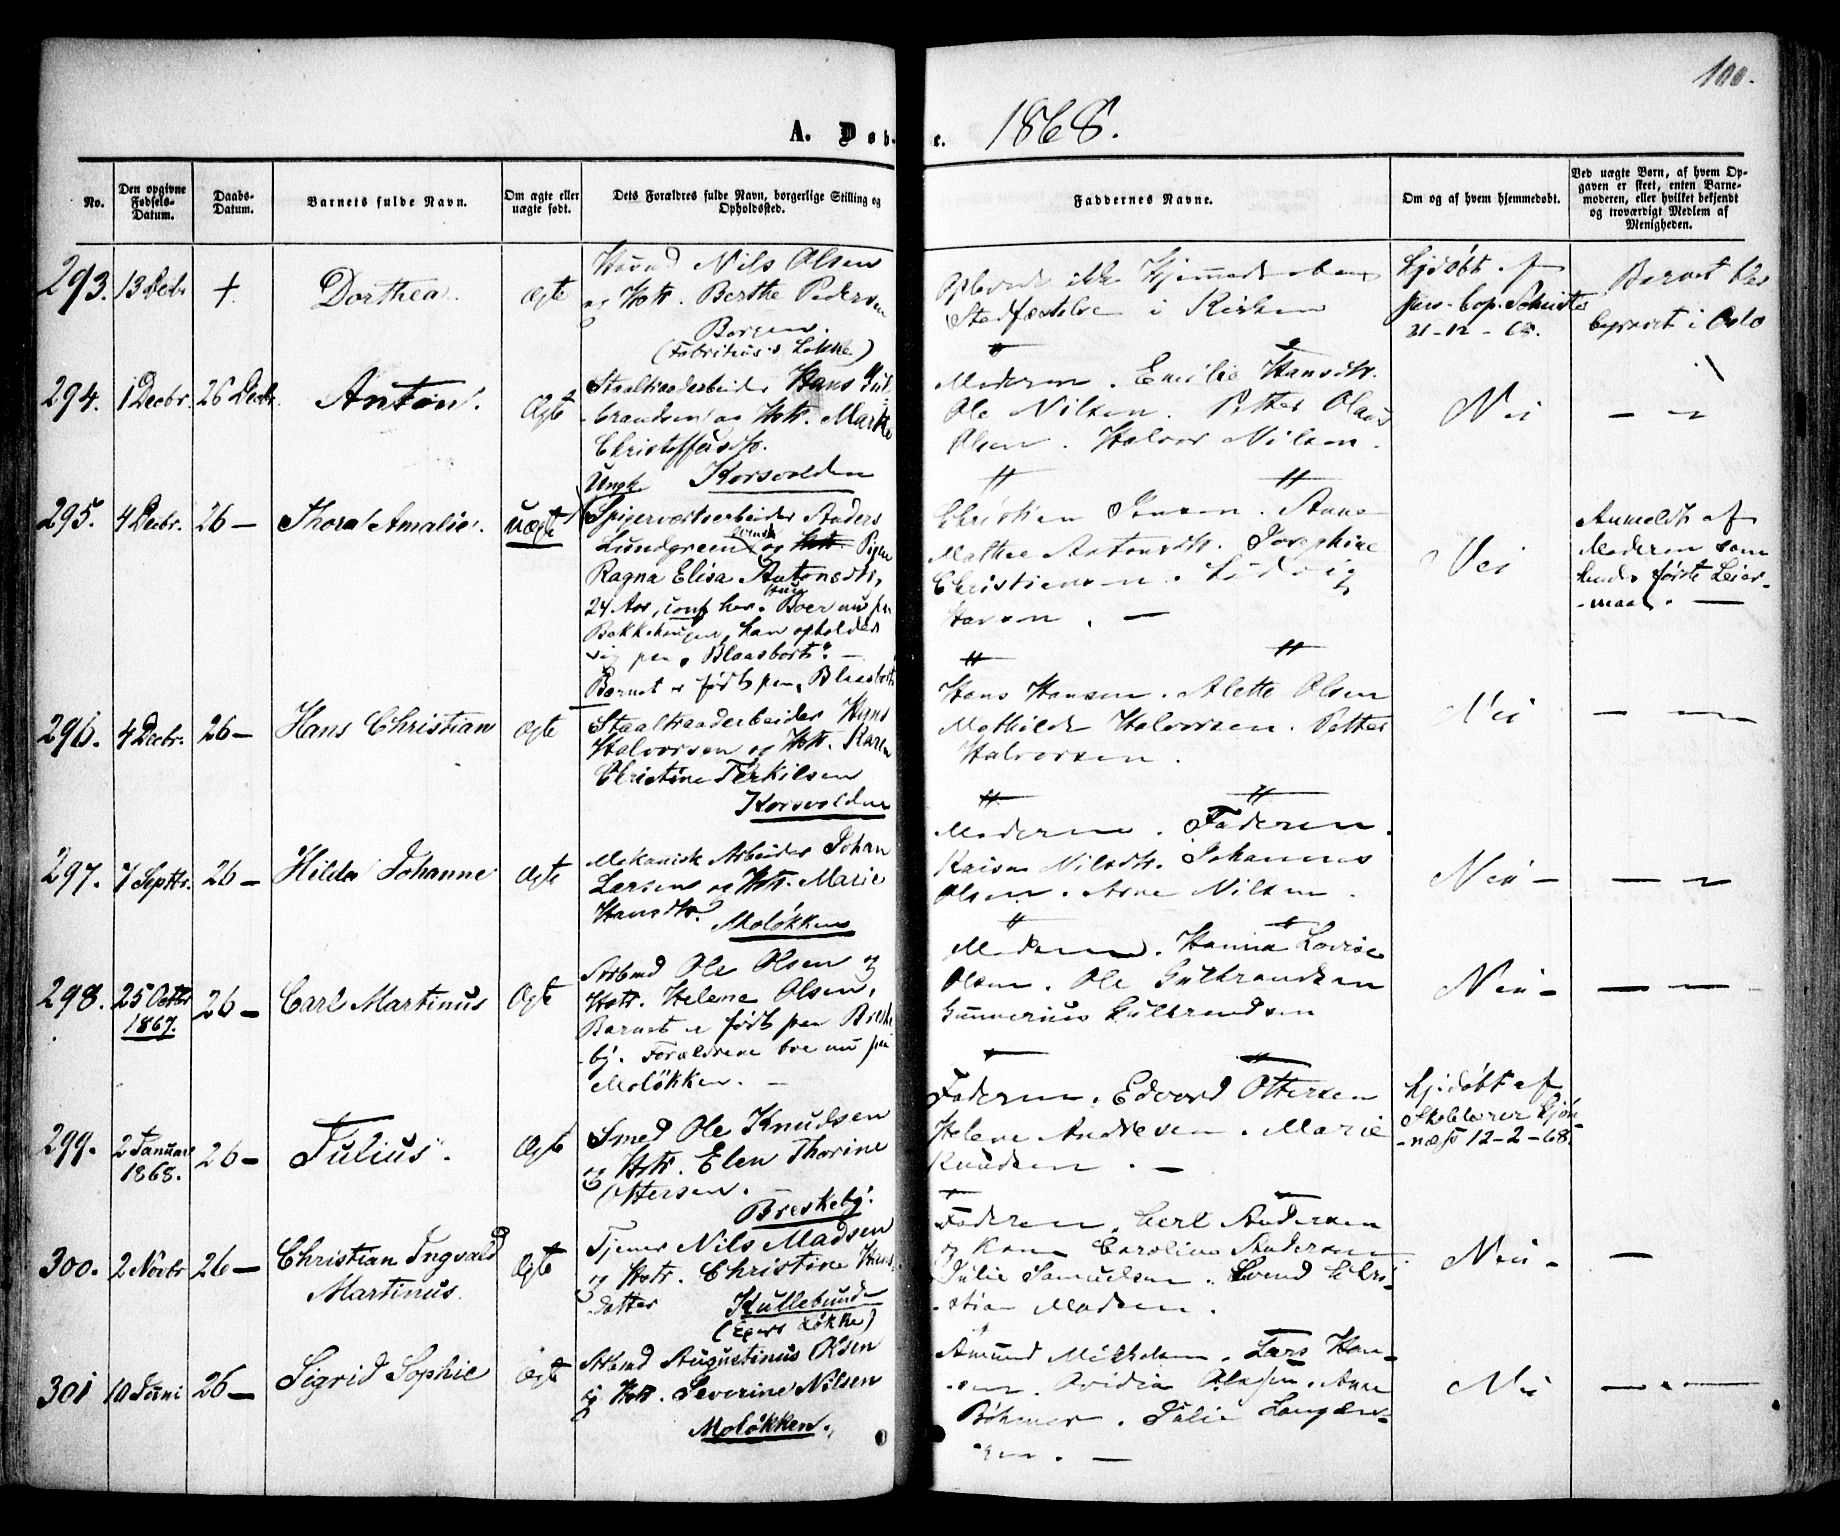 100.
A. Døb-
e. 1868.
No.
Den opgivne Fødsels-Datum.
Daabs-Datum.
Barnets fulde Navn.
Om ægte eller uægte født.
Dets Forældres fulde Navn, borgerlige Stilling og Opholdssted.
Faddernes Navne.
Om og af hvem hjemmedøbt.
Ved uægte Børn, af hvem Opgaven er skeet, enten Barnemoderen, eller hvilket bekjendt og troværdigt Medlem af Menigheden.
293. 13 Decbr + Dorthea. Ægte
Nils Olsen
og Hstr. Berthe Pedersen
Borgen.
(Fabritius's Løkke)
Oplevede ikke Hjemmedaabens
Stadfæstelse i Kirken
hjdøbt af
21-12-68.
Barnet blev
begravet i Oslo
294. 1 Decbr. 26 Decbr. Anton. Ægte
Staaltraadarbeider Hans Gul-
-brandsen og Hstr. Marthe
Christoffersdtr.
Korsvolden
Moderen. Emilie Hansdtr.
Ole Nilsen. Petter Olaus
Olsen. Halvor Nilsen.
Nei
295. 4 Decbr. 26 — Thora Amalie. uægte
Ungk.
Spigerværksarbeider Anders
Lundgreen og Hstr. Pigen
Ragna Elisa Antonsdtr,
24 Aar, conf her. Boer nu paa
Bakkehaugen, han opholder
sig paa "Blaasbort". —
Barnet er født paa "Blaasbort"
Christian Jensen. Anne
Mathea Antonsdtr. Josephine
Christiensen. Ludvig
Hansen. —
Nei
Anmeldt af
Moderen som
hendes første Leier-
-maal. —
296. 4 Decbr. 26 — Hans Christian Ægte
Staaltraadarbeider Hans
Halvorsen og Hstr. Karen
Christine Terkilsen
Korsvolden
Hans Hansen. Alette Olsen
Mathilde Halvorsen. Petter
Halvorsen.
Nei
297. 7 Septbr. 26 — Hilda Johanne Ægte
Mekanisk Arbeider Johan
Larsen og Hstr. Marie
Hansdtr.
Moløkken
Moderen. Faderen.
Karen Nilsdtr. Johannes
Olsen. Arne Nilsen.
Nei —
298. 25 Octbr 1867. 26 — Carl Martinus Ægte
Arbmd Ole Olsen og
Hstr. Helene Olsen,
Barnet er født paa Briske-
by. Forældrene boe nu paa
Moløkken. —
Moderen. Hanna Lovise
Olsen. Ole Gulbrandsen
Gunnerius Gulbrandsen
Nei —
299. 2 Januar 1868. 26 — Julius. Ægte
Smed Ole Knudsen
og Hstr. Elen Thorine
Ottersen.
Breskeby.
Faderen. Edvard Ottersen
Helene Andresen. Marie
Knudsen. —
hjdøbt af
Skolelærer Gjøn-
-næss 12-2-68.
300. 2 Novbr 26 — Christian Ingvald
Martinus. Ægte
Tjener Nils Madsen
og Hstr. Christine Hans-
datter Kullebunden
(Egers Løkke)
Faderen. Carl Andersen
og Kone Caroline Andersen
Julie Samuelsen. Svend Chri-
-stian Madsen.
Nei —
301 10 Juni 26 — Sigrid Sophie Ægte
Arbmd Augustinus Olsen
og Hstr. Severine Nilsen
Moløkken.
Amund Mikkelsen. Lars Han-
-sen. Ovidia Olsen. Anne
Böhmer. Julie Langøen-
-sen. —
Nei